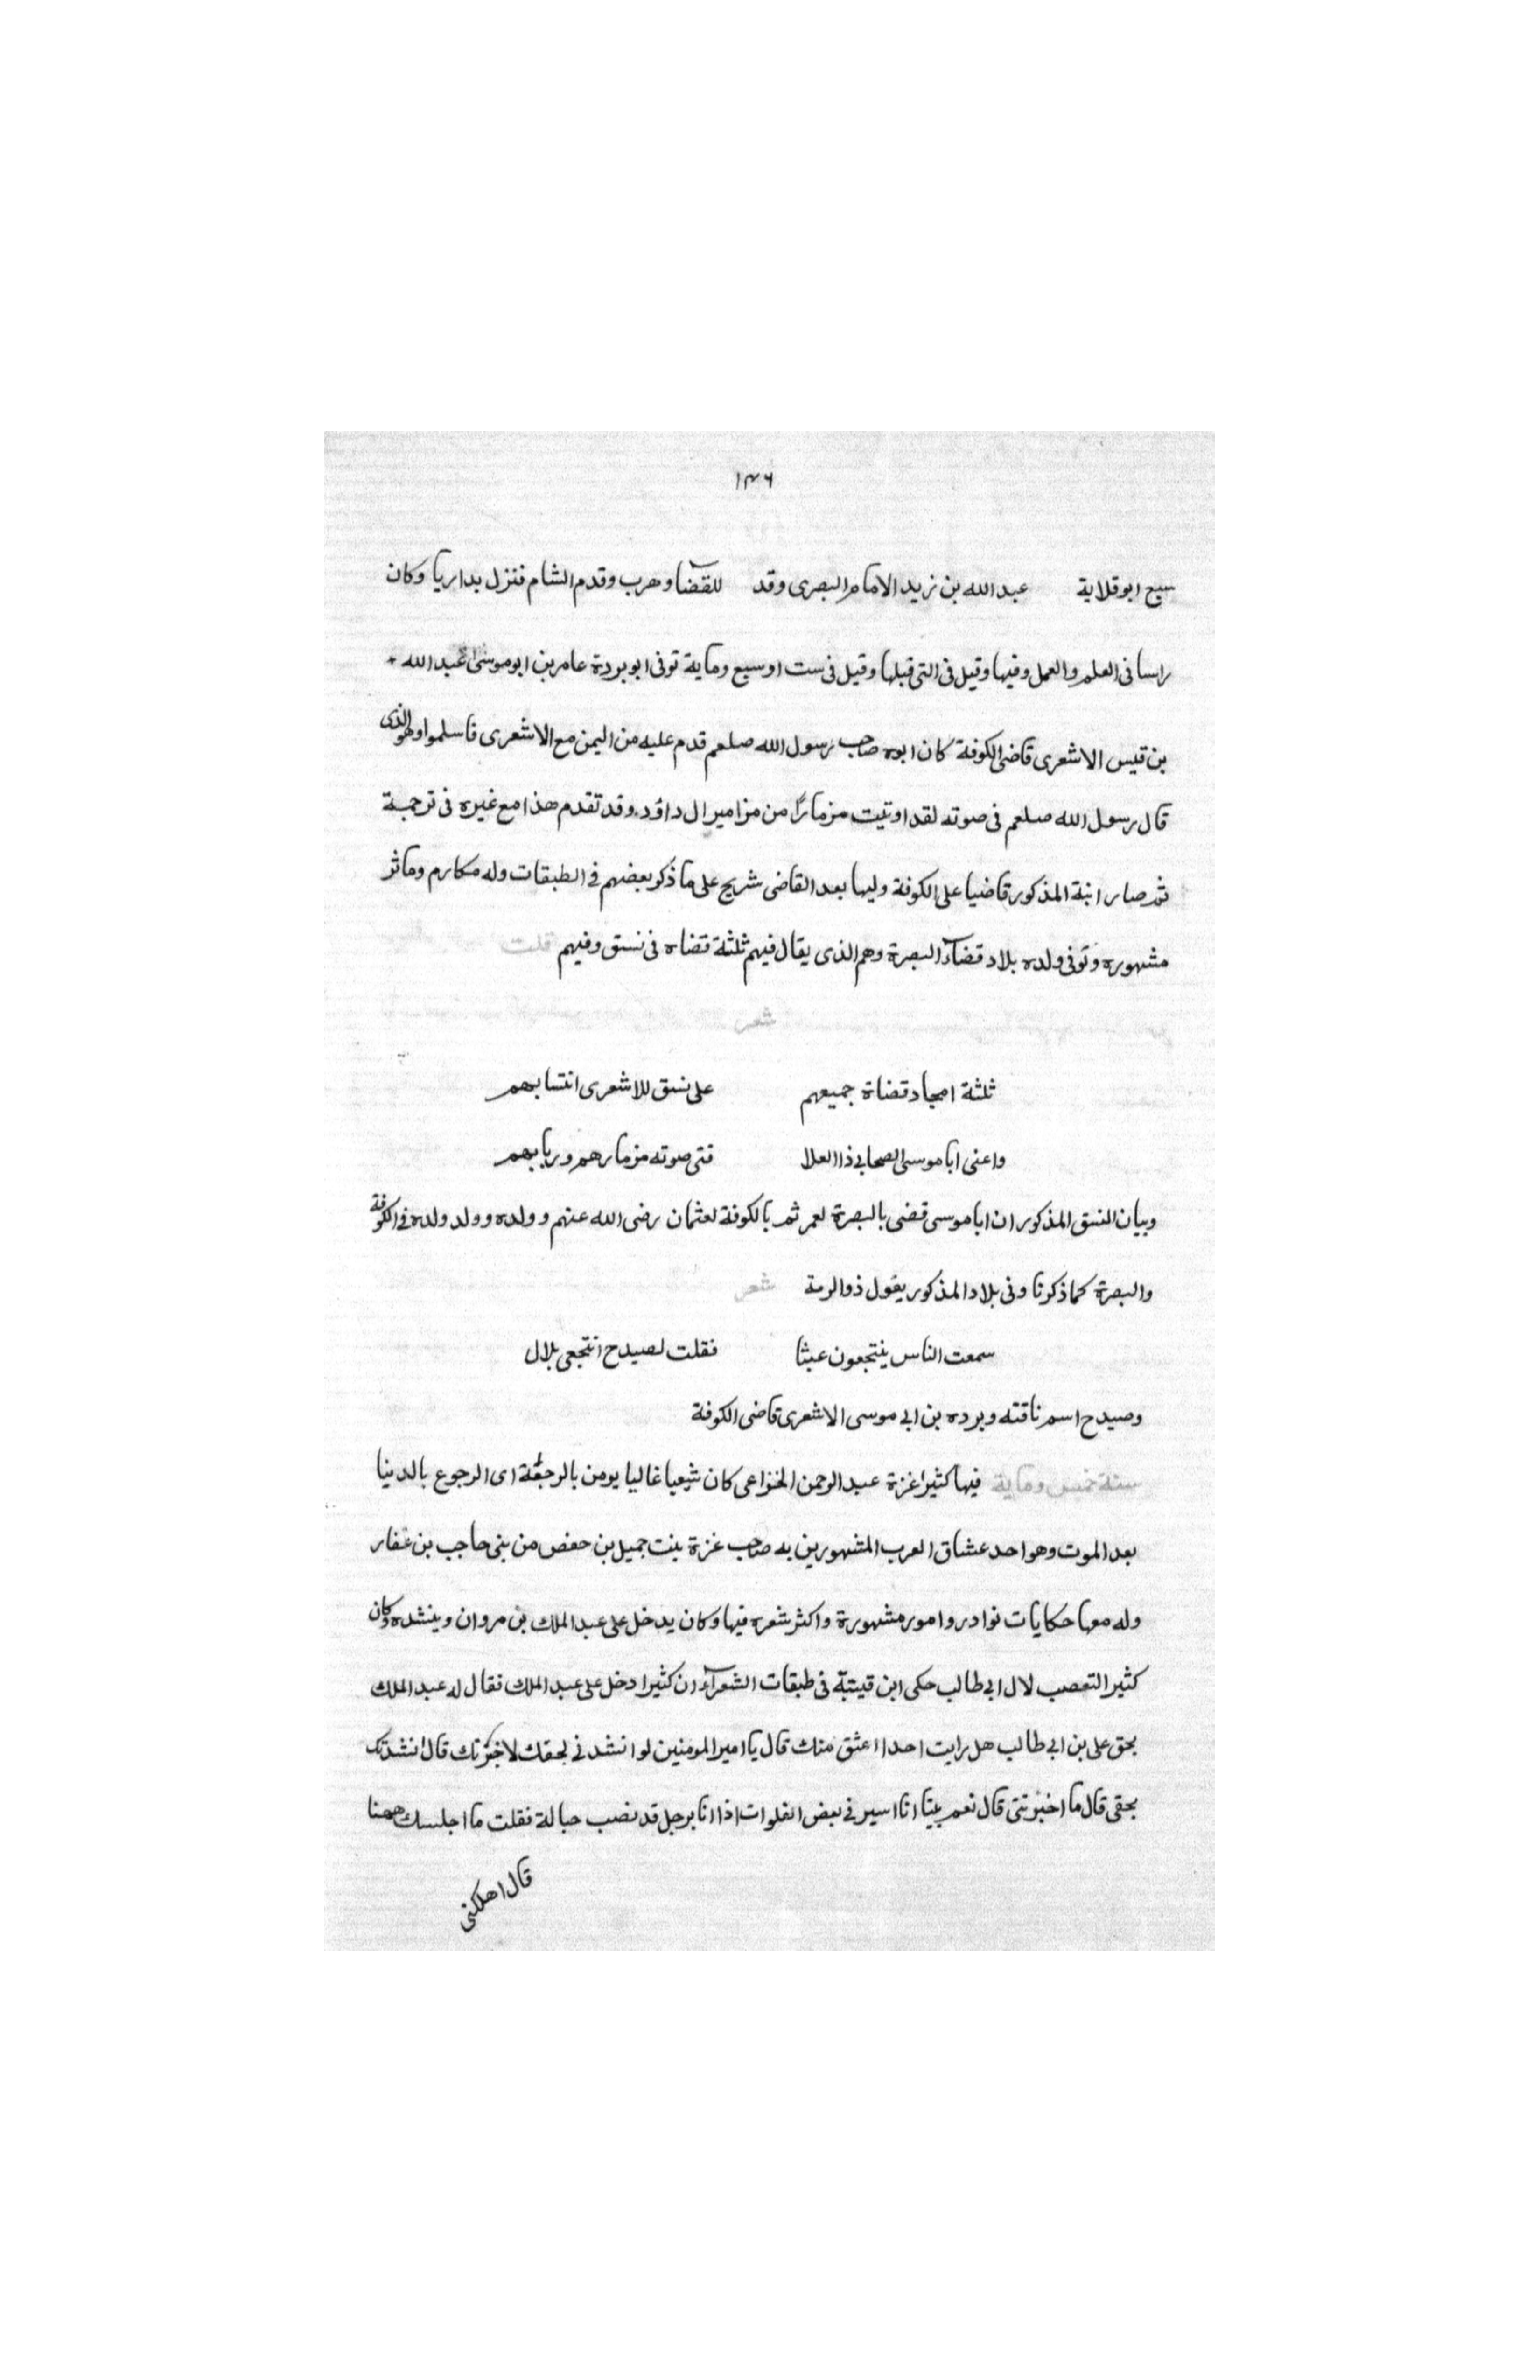 ١٣٦
سبع ابو قلابة عبد الله بن زيد الامام البصرى وقد للقضآ وهرب وقدم الشام فنزل بداريا وكان
راسا فى العلم والعمل وفيها وقيل فى التى قبلها وقيل فى ست او سبع وماية توفى ابو بردة عامر بن ابو موسى عبد الله
بن قيس الاشعرى قاضى الكوفة كان ابوه صاحب رسول الله صلعم قدم عليه من اليمن مع الاشعرى فاسلموا وهو الذى
قال رسول الله صلعم فى صوته لقد اوتيت مزمارًا من مزامير ال داؤد وقد تقدم هذا مع غيره فى ترجمة
ثم صار ابنة المذكور قاضيا على الكوفة وليها بعد القاضى شريح على ما ذكر بعضهم فى الطبقات وله مكارم وماثر
مشهوره وتوفى ولده بلاد قضآء البصرة وهم الذى يقال فيهم ثلثة قضاه فى نسق وفيهم قلت
شعر
ثلثة امجاد قضاة جميعهم على نسق للاشعرى انتسابهم
واعنى ابا موسى الصحابى ذا العلا فتى صوته مزمارهم وربابهم
وبيان النسق المذكور ان ابا موسى قضى بالبصرة لعمر ثم بالكوفة لعثمان رضى الله عنهم وولده وولد ولده فى الكوفة
والبصرة كما ذكرنا وفى بلاد المذكور يقول ذو الرمة شعر
سمعت الناس ينتجعون عبثا فقلت لصيدح انتجعى بلال
وصيدح اسم ناقته وبرده بن ابى موسى الاشعرى قاضى الكوفة
سنة خمس وماية فيها كثير اغزة عبد الرحمن الخزاعى كان شيعيا غاليا يومن بالرجعة اى الرجوع بالدينا
بعد الموت وهو احد عشاق العرب المشهورين به صاحب غزة بنت جميل بن حفص من بنى حاجب بن غفار
وله معها حكايات نوادر وامور مشهورة واكثر شعره فيها وكان يدخل على عبد الملك بن مروان وينشده وكان
كثير التعصب لال ابى طالب حكى ابن قيتبة فى طبقات الشعرآء ان كثيرا دخل على عبد الملك فقال له عبد الملك
بحق على بن ابى طالب هل رايت احدا اعشق منك قال يا امير المومنين لو انشدنى بحقك لاخبرتك قال انشدتك
بحقى قال ما اخبرتنى قال نعم بينا انا اسير فى بعض الفلوات اذا انا برجل قد نصب حبالة فقلت ما اجلسك ههنا
قال اهلكنى